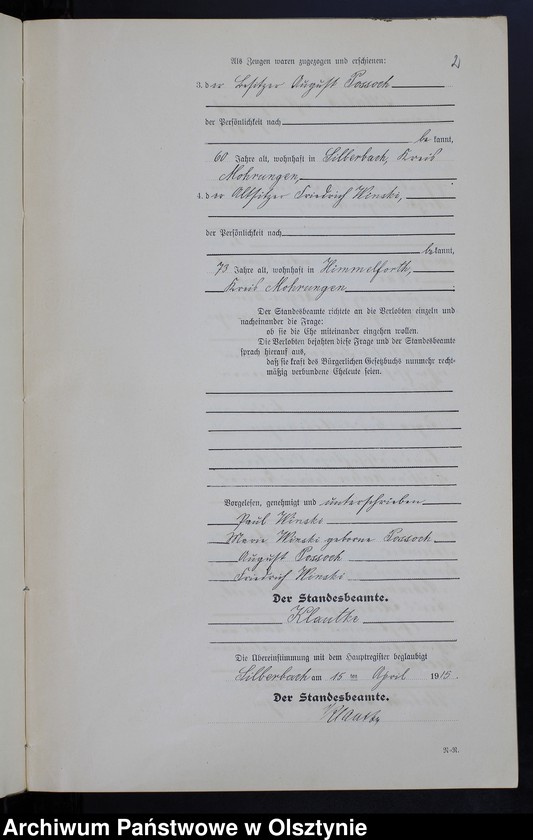 2
Als Zeugen waren zugezogen und erschienen:
3. der Besitzer August Possoch
der Persönlichkeit nach
be kannt,
60 Jahre alt, wohnhaft in Silberbach, Kreis
Mohrungen,
4. der Altsitzer Friedrich Winski,
der Persönlichkeit nach
be kannt,
73 Jahre alt, wohnhaft in Himmelforth,
Kreis Mohrungen
Der Standesbeamte richtete an die Verlobten einzeln und
nacheinander die Frage:
ob sie die Ehe miteinander eingehen wollen.
Die Verlobten bejahten diese Frage und der Standesbeamte
sprach hierauf aus,
daß sie kraft des Bürgerlichen Gesetzbuchs nunmehr recht-
mäßig verbundene Eheleute seien.
Vorgelesen, genehmigt und unterschrieben
Paul Winski
Marie Winski geborne Possoch
August Possoch
Friedrich Winski
Der Standesbeamte.
Klautke
Die Übereinstimmung mit dem Hauptregister beglaubigt
Silberbach am 15 ten April 1915.
Der Standesbeamte.
Klautke
N-R.
Archiwum Państwowe w Olsztynie